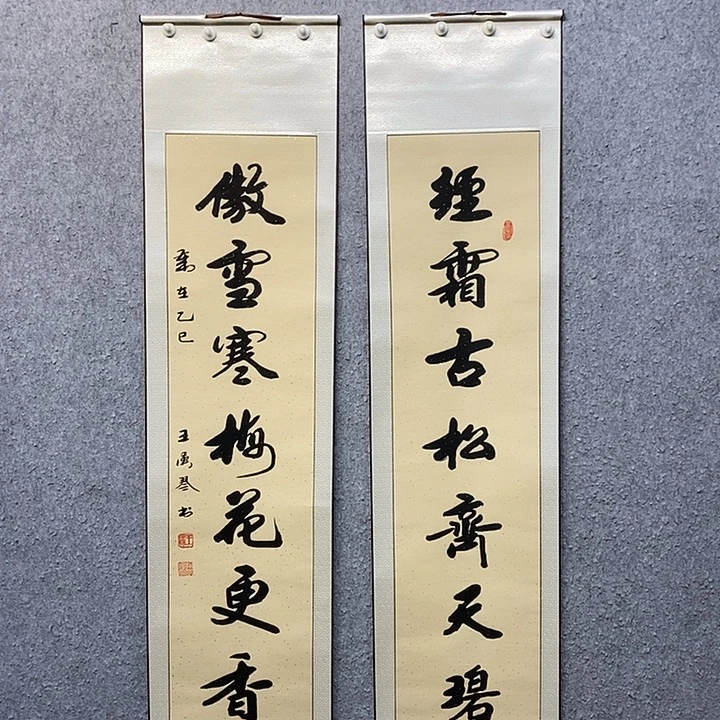 經霜古松齊天碧
傲雪寒梅花更香
歲在乙巳
王禹琴书